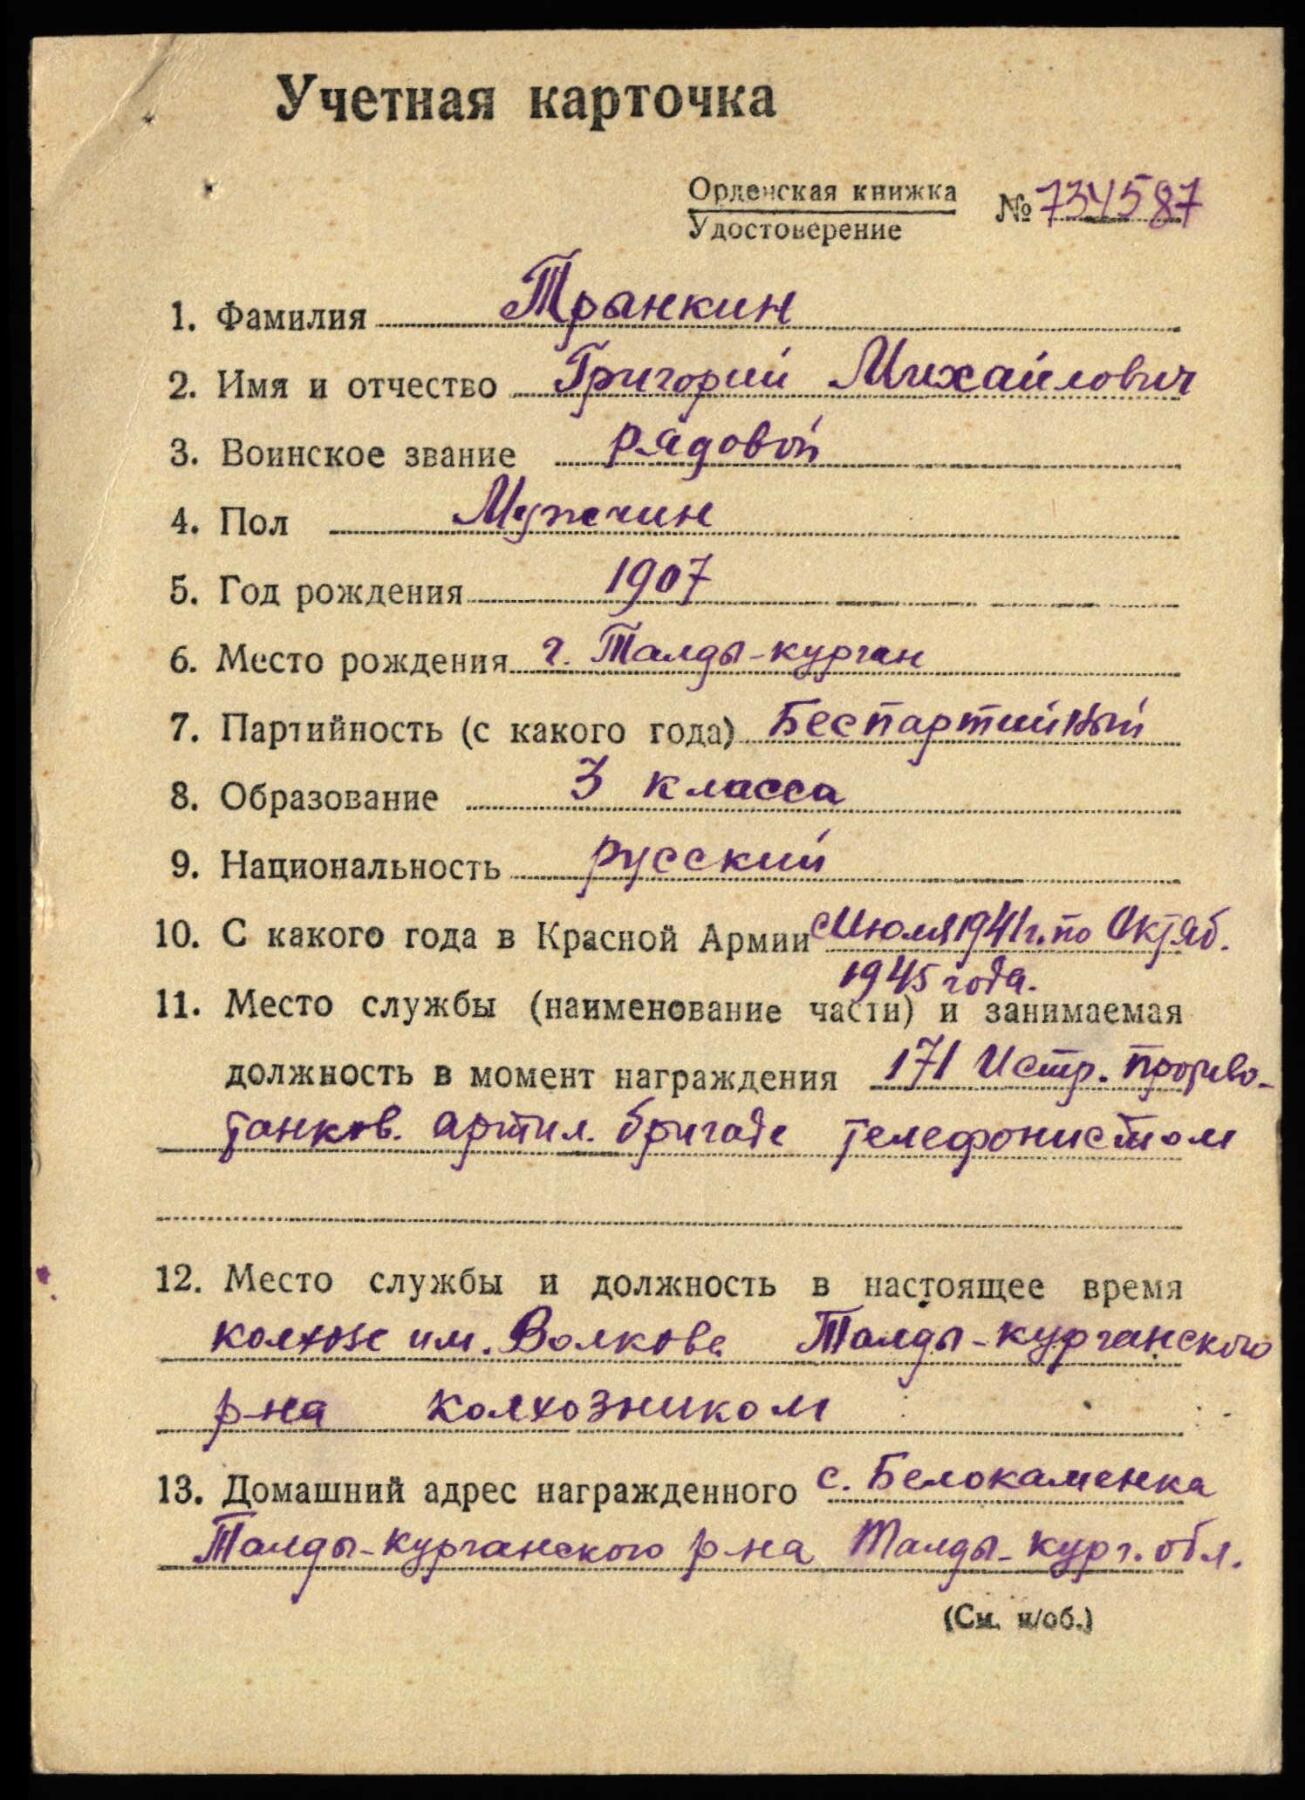 Учетная карточка
Орденская книжка
Удостоверение
№ 734587
1. Фамилия Транкин
2. Имя и отчество Григорий Михайлович
3. Воинское звание рядовой
4. Пол Мужчин
5. Год рождения 1907
6. Место рождения г. Талды-курган
7. Партийность (с какого года) Беспартийный
8. Образование 3 класса
9. Национальность русский
10. С какого года в Красной Армии с Июля 1941 г. по Октяб.
1945 года.
11. Место службы (наименование части) и занимаемая
должность в момент награждения 171 Истр. противо-
танков. артил. бригаде телефонистом
12. Место службы и должность в настоящее время
колхозе им. Волкова Талды-курганского
р-на колхозником
13. Домашний адрес награжденного с. Белокаменка
Талды-курганского р-на Талды-кург. обл.
(См. н/об.)